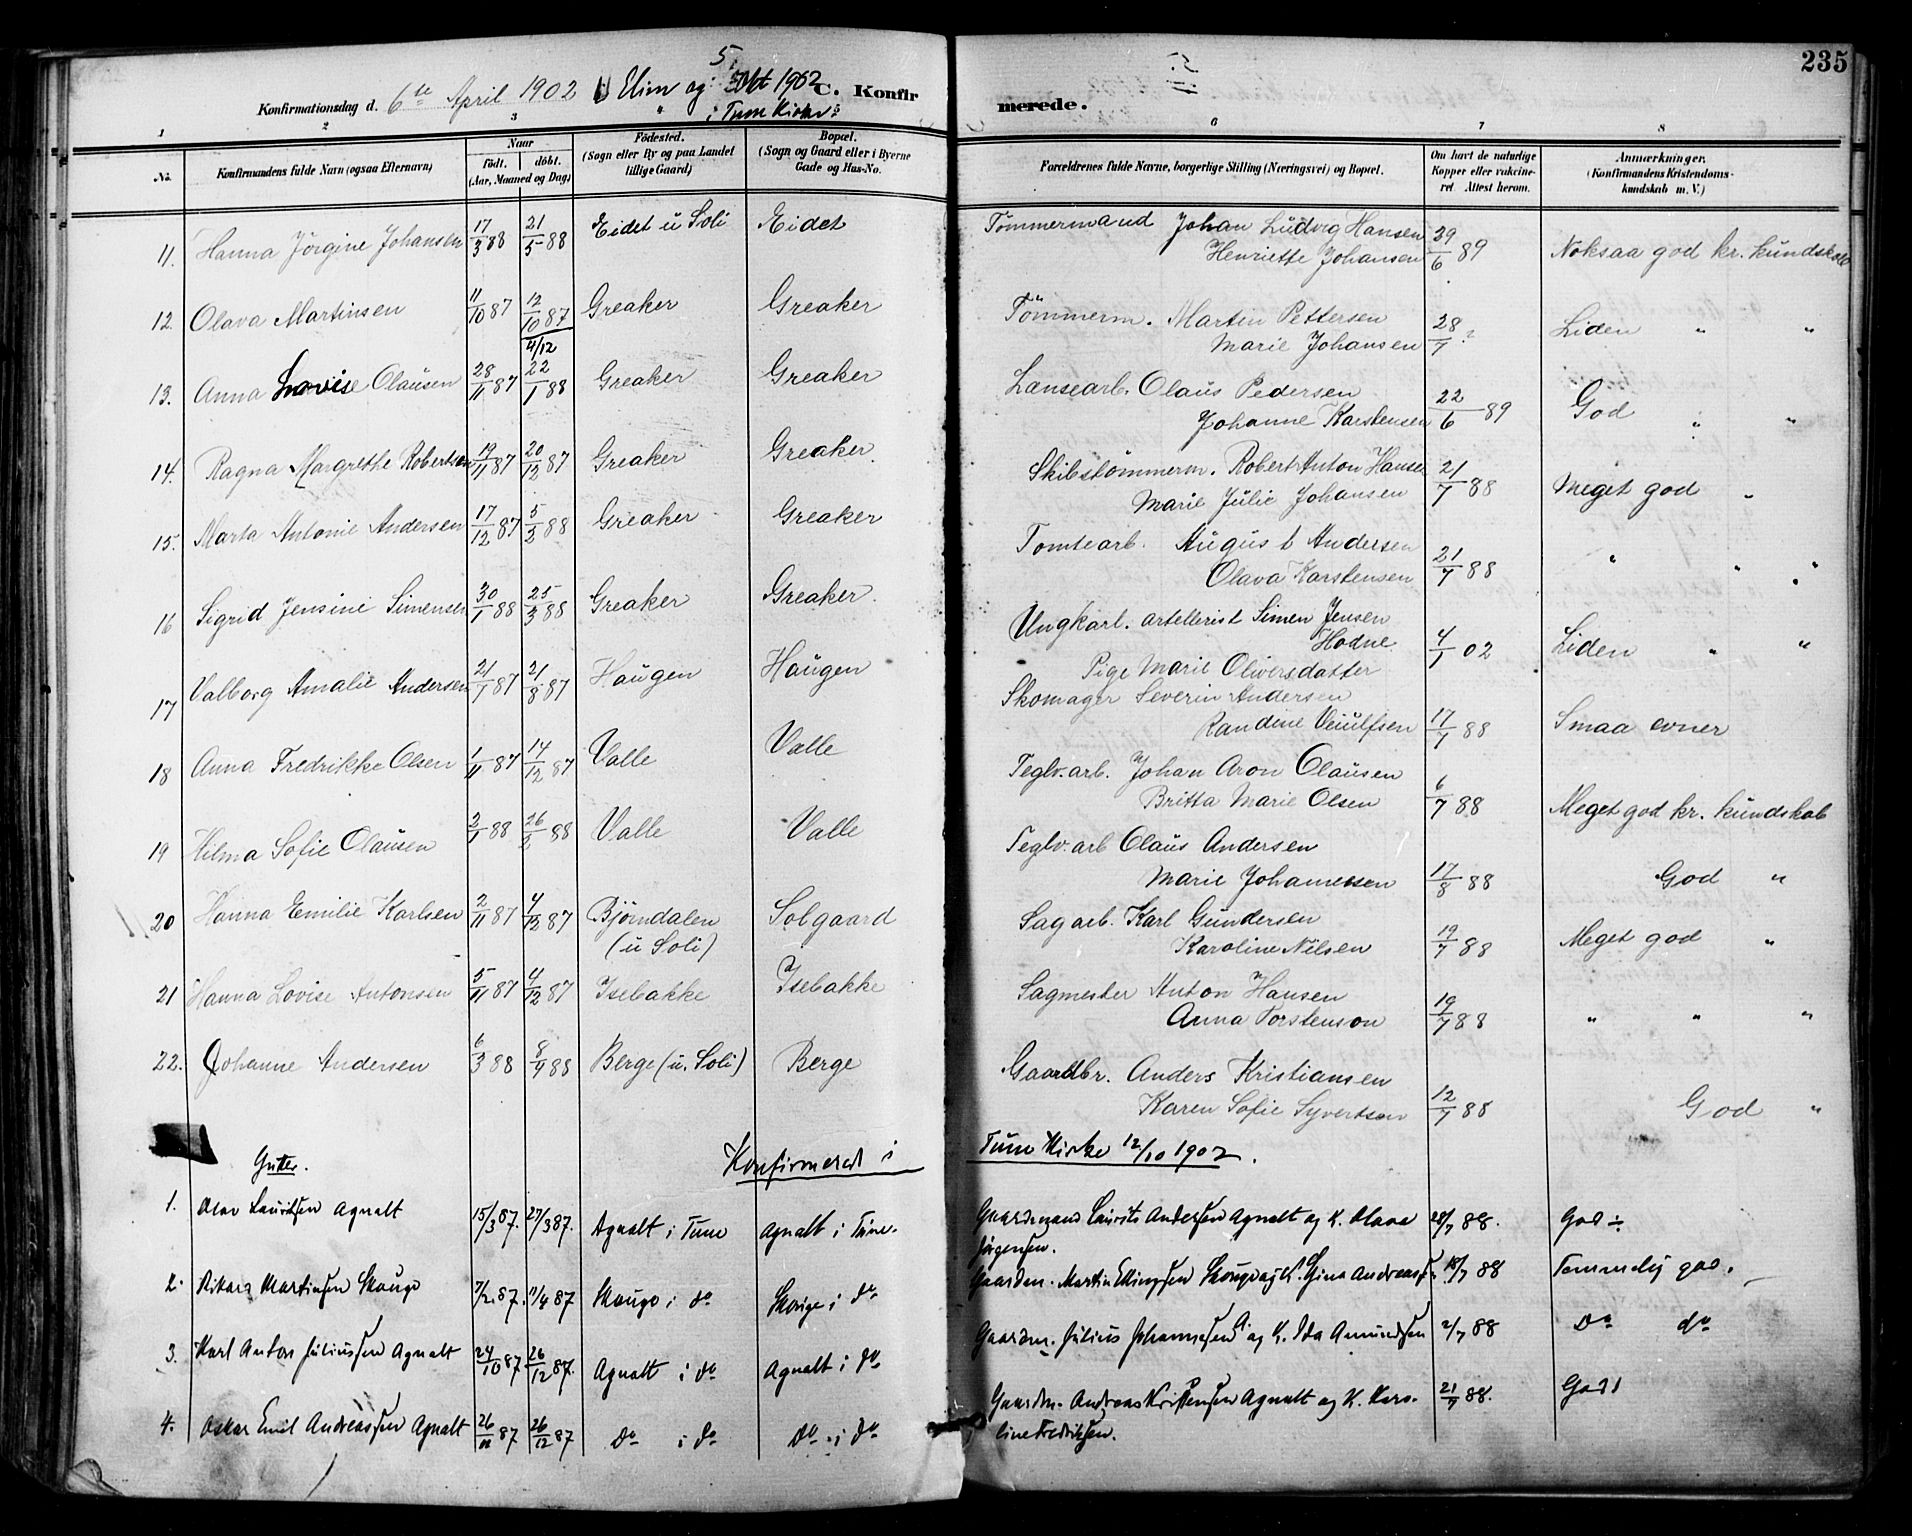 235
Konfirmationsdag d. 6te April 1902 i Elim og 5. Okt 1902 C. Konfirmerede.
" i Tune Kirke
1 2 3 6 7 8
No.
Konfirmandens fulde Navn (ogsaa Efternavn)
Naar
födt. döbt.
(Aar, Maaned og Dag)
Födested.
(Sogn eller By og paa Landet
tillige Gaard)
Bopæl.
(Sogn og Gaard eller i Byerne
Gade og Hus-No.
Forældrenes fulde Navne, borgerlige Stilling (Næringsvei) og Bopæl.
Om havt de naturlige
Kopper eller vakcine-
ret Attest herom.
Anmærkninger.
(Konfirmandens Kristendoms-
kundskab m. V.)
11. Hanna Jörgine Johansen 17/3 88 21/5 88 Eidet u Soli Eidet Tömmermand Johan Ludvig Hansen
Henriette Johansen 29/6 89 Noksaa god kr. kundskab
12. Olava Martinsen 11/10 87 12/10 87 Greaker Greaker Tömmerm. Martin Pettersen
4/12 Marie Johansen 28/7 ? Liden " "
13. Anna Lovise Olausen 28/11 87 22/1 88 Greaker Greaker Lansearb. Olaus Pedersen
Johanne Karstensen 22/6 89 God " "
14. Ragna Margrethe Robertsen 19/11 87 20/12 87 Greaker Greaker. Skibstömmerm. Robert Anton Hansen
Marie Julie Johansen 21/7 88 Meget god "
15. Marta Antonie Andersen 17/12 87 5/2 88 Greaker Greaker Tomtearb. August Andersen
Olava Karstensen 21/7 88 " " "
16 Sigrid Jensine Simensen 30/1 88 25/3 88 Greaker Greaker. Ungkarl. artellerist Simen Jensen
Hodne
Pige Marie Oliversdatter 4/1 02 Liden " "
17 Valborg Amalie Andersen 21/7 87 21/8 87 Haugen Haugen Skomager Severin Andersen
Randine Veiulfsen 17/7 88 Smaa evner
18 Anna Fredrikke Olsen 1/11 87 14/12 87 Valle Valle Teglv.arb. Johan Aron Olausen
Britta Marie Olsen 6/7 88 Meget god kr. kundskab
19 Hilma Sofie Olausen 2/1 88 26/2 88 Valle Valle Teglv.arb Olaus Andersen
Marie Johannesen 17/8 88 God "
20 Hanna Emilie Karlsen 2/11 87 4/12 87 Björndalen Solgaard Sagarb. Karl Gundersen
(u Soli) Karoline Nilsen 19/7 88 Meget god "
21 Hanna Lovise Antonsen 5/11 87 4/12 87 Isebakke Isebakke Sagmester Anton Hansen
Anna Torstenson 19/7 88 " " "
22. Johanne Andersen 6/3 88 8/4 88 Berge (u. Soli) Berge Gaardbr. Anders Kristiansen
Karen Sofie Syvertsen 12/7 88 God "
Gutter. Konfirmeret i Tune Kirke 12/10 1902.
1. Olav Lauritsen Agnalt 15/3 87. 27/3 87. Agnalt i Tune Agnalt i Tune. Gaardmand Laurits Andersen Agnalt og K. Olava 28/7 88. God
Jörgensen.
2. Rikard Martinsen Skauge 7/2 87. 11/4 87 Skauge i do Skauge i do Gaardm. Martin Ellingsen Skauge og K. Gina Andreasd. 18/7 88 Temmelig god.
3. Karl Anton Juliussen Agnalt 24/10 87 26/12 87. Agnalt i do Agnalt i do Gaardm. Julius Johannesen A. og K. Ida Amundsen 2/7 88 Do do
4. Oskar Emil Andreassen Agnalt 26/11 87 26/12 87 Do i do Do i do Gaardm. Andreas Kristensen Agnalt og K. Karo-
line Fredriksen. 21/7 88. God